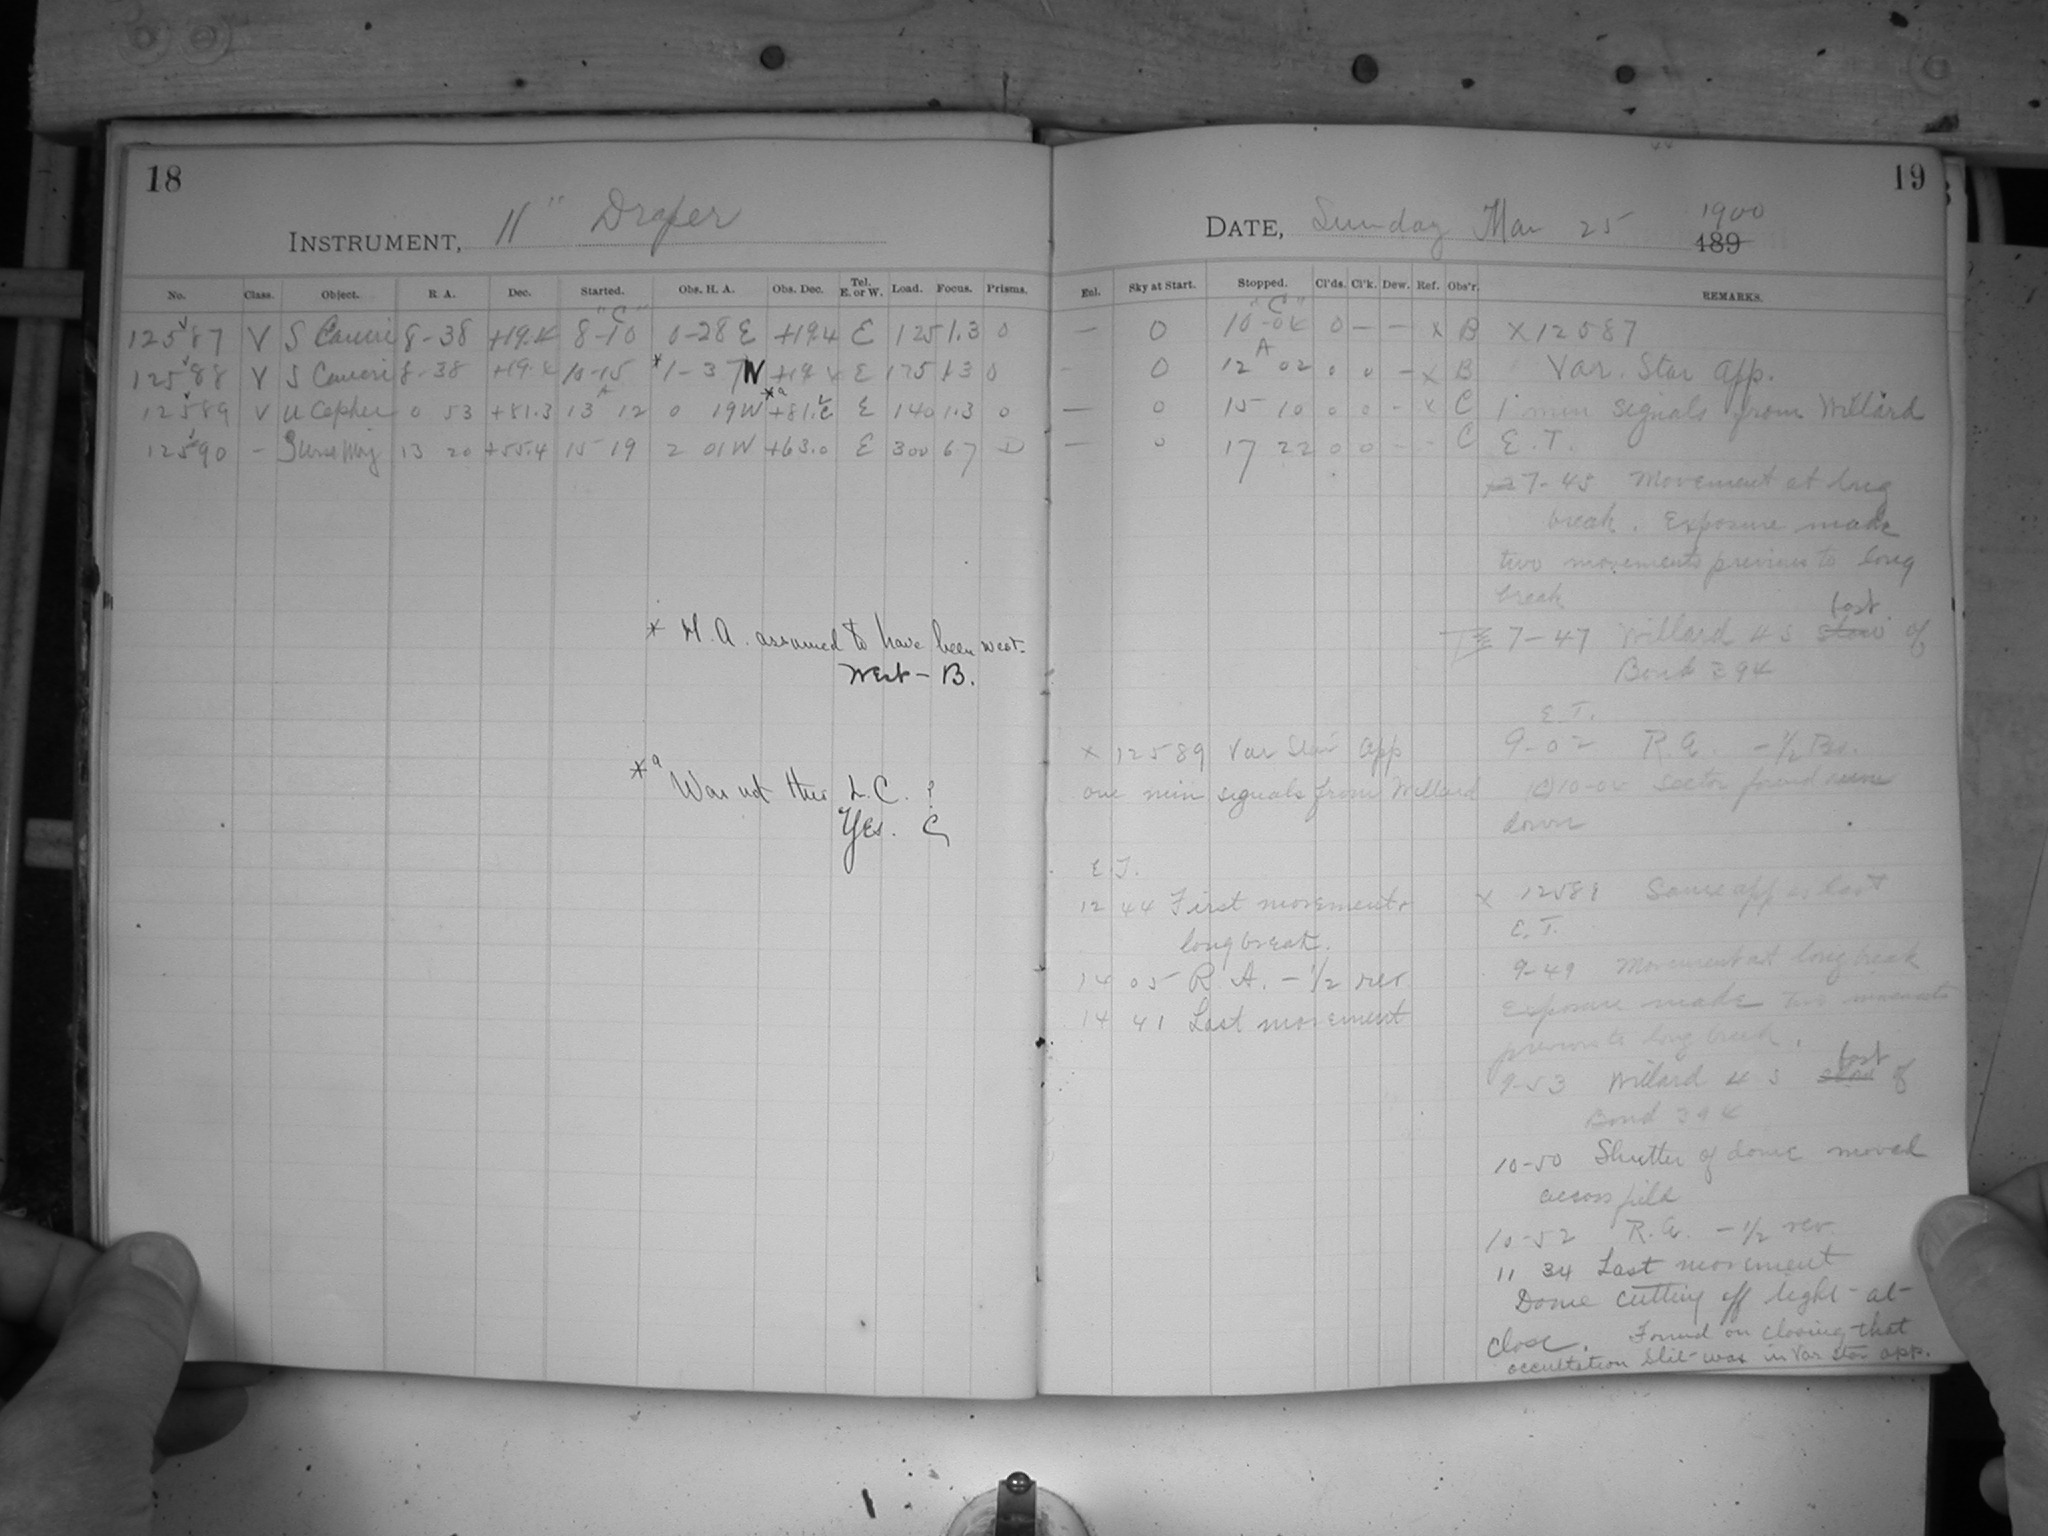 18
INSTRUMENT, 11" Draper
No. Class. Object. R. A. Dec. Started. Obs. H. A. Obs. Dec. Tel. E. or W. Load. Focus. Prisms.
"C"
12587 V S Cancri 8-38 +19.4 8-10 0-28 E +19.4 E 125 1.3 0
12588 V S Cancri 8-38 +19.4 10-15 *1-37 W +19.4 E 175 1.3 0
12589 V U Cephei 0 53 +81.3 13 12 0 19 W *a +81.2 E 140 1.3 0
12590 - Maj 13 20 +55.4 15 19 2 01 W +63.0 E 300 67 D
* H. A. assumed to have been west.
West - B.
*a Was not this L. C. ?
Yes. C
19
DATE, Sunday Mar 25 1900
189
Enl. Sky at Start. Stopped. Cl'ds. Cl'k. Dew. Ref. Obs'r. REMARKS.
"C"
— 0 10-04 0 — — x B x 12587
- 0 12 02 0 0 - x B Var. Star App.
— 0 15 10 0 0 - x C 1 min signals from Willard
— 0 17 22 0 0 - - C E. T.
7-45 Movement at long
break. Exposure made
two movements previous to long
break
fast
7-47 Willard 4 s slow of
Bond 394
E. T.
9-02 R. A. - 1/2 Rev.
10-04 Sector found
down
x 12589 Var Star App
one min signals from Willard
E. T.
12 44 First movement
long break.
14 05 R. A. - 1/2 rev
14 41 Last movement
x 1258 Same app as last
E. T.
9-49 Movement at long break
Exposure made two movements
previous to long break.
fast
9-53 Willard 4 s slow of
Bond 394
10-50 Shutter of dome moved
across field
10-52 R. A. - 1/2 rev
11 34 Last movement
Dome cutting off light at
close. Found on closing that
occultation slit was in Var Star app.